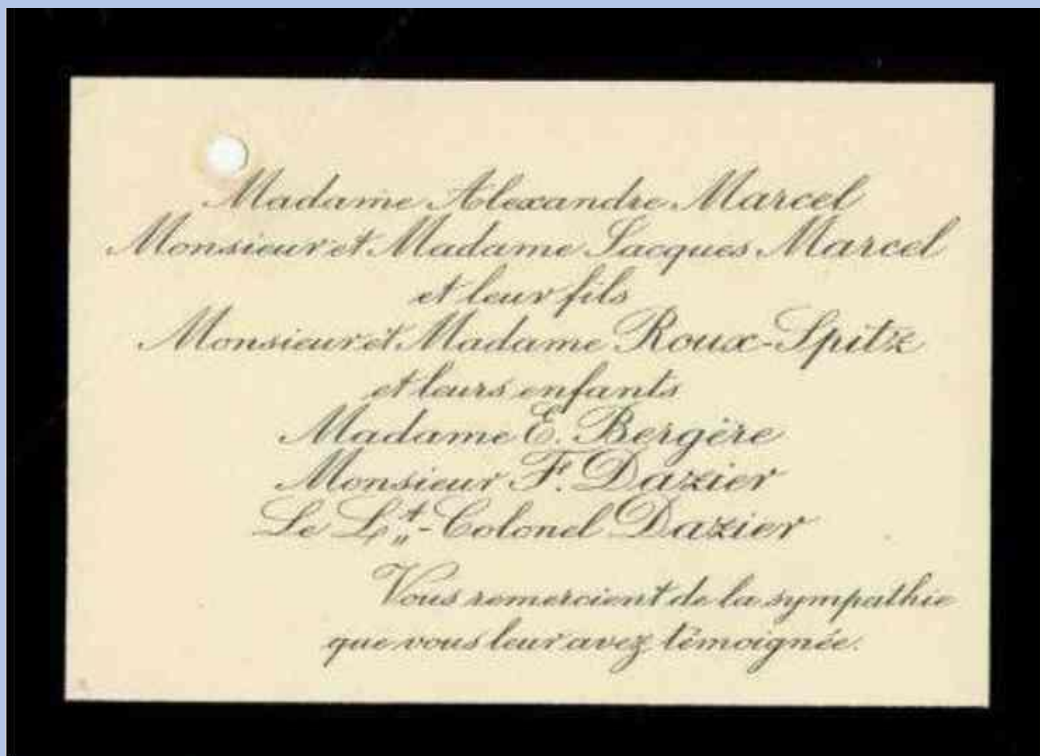 Madame Alexandre Marcel
Monsieur et Madame Jacques Marcel
et leur fils
Monsieur et Madame Roux-Spitz
et leurs enfants
Madame E. Bergère
Monsieur F. Dazier
Le Lt-Colonel Dazier
Vous remercient de la sympathie
que vous leur avez témoignée.